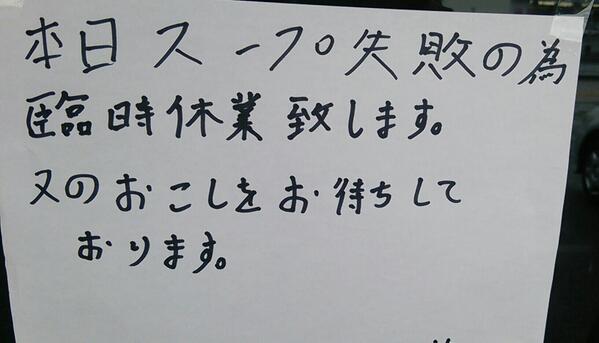 本日スープ失敗の為
臨時休業致します。
又のおこしをお待ちして
おります。